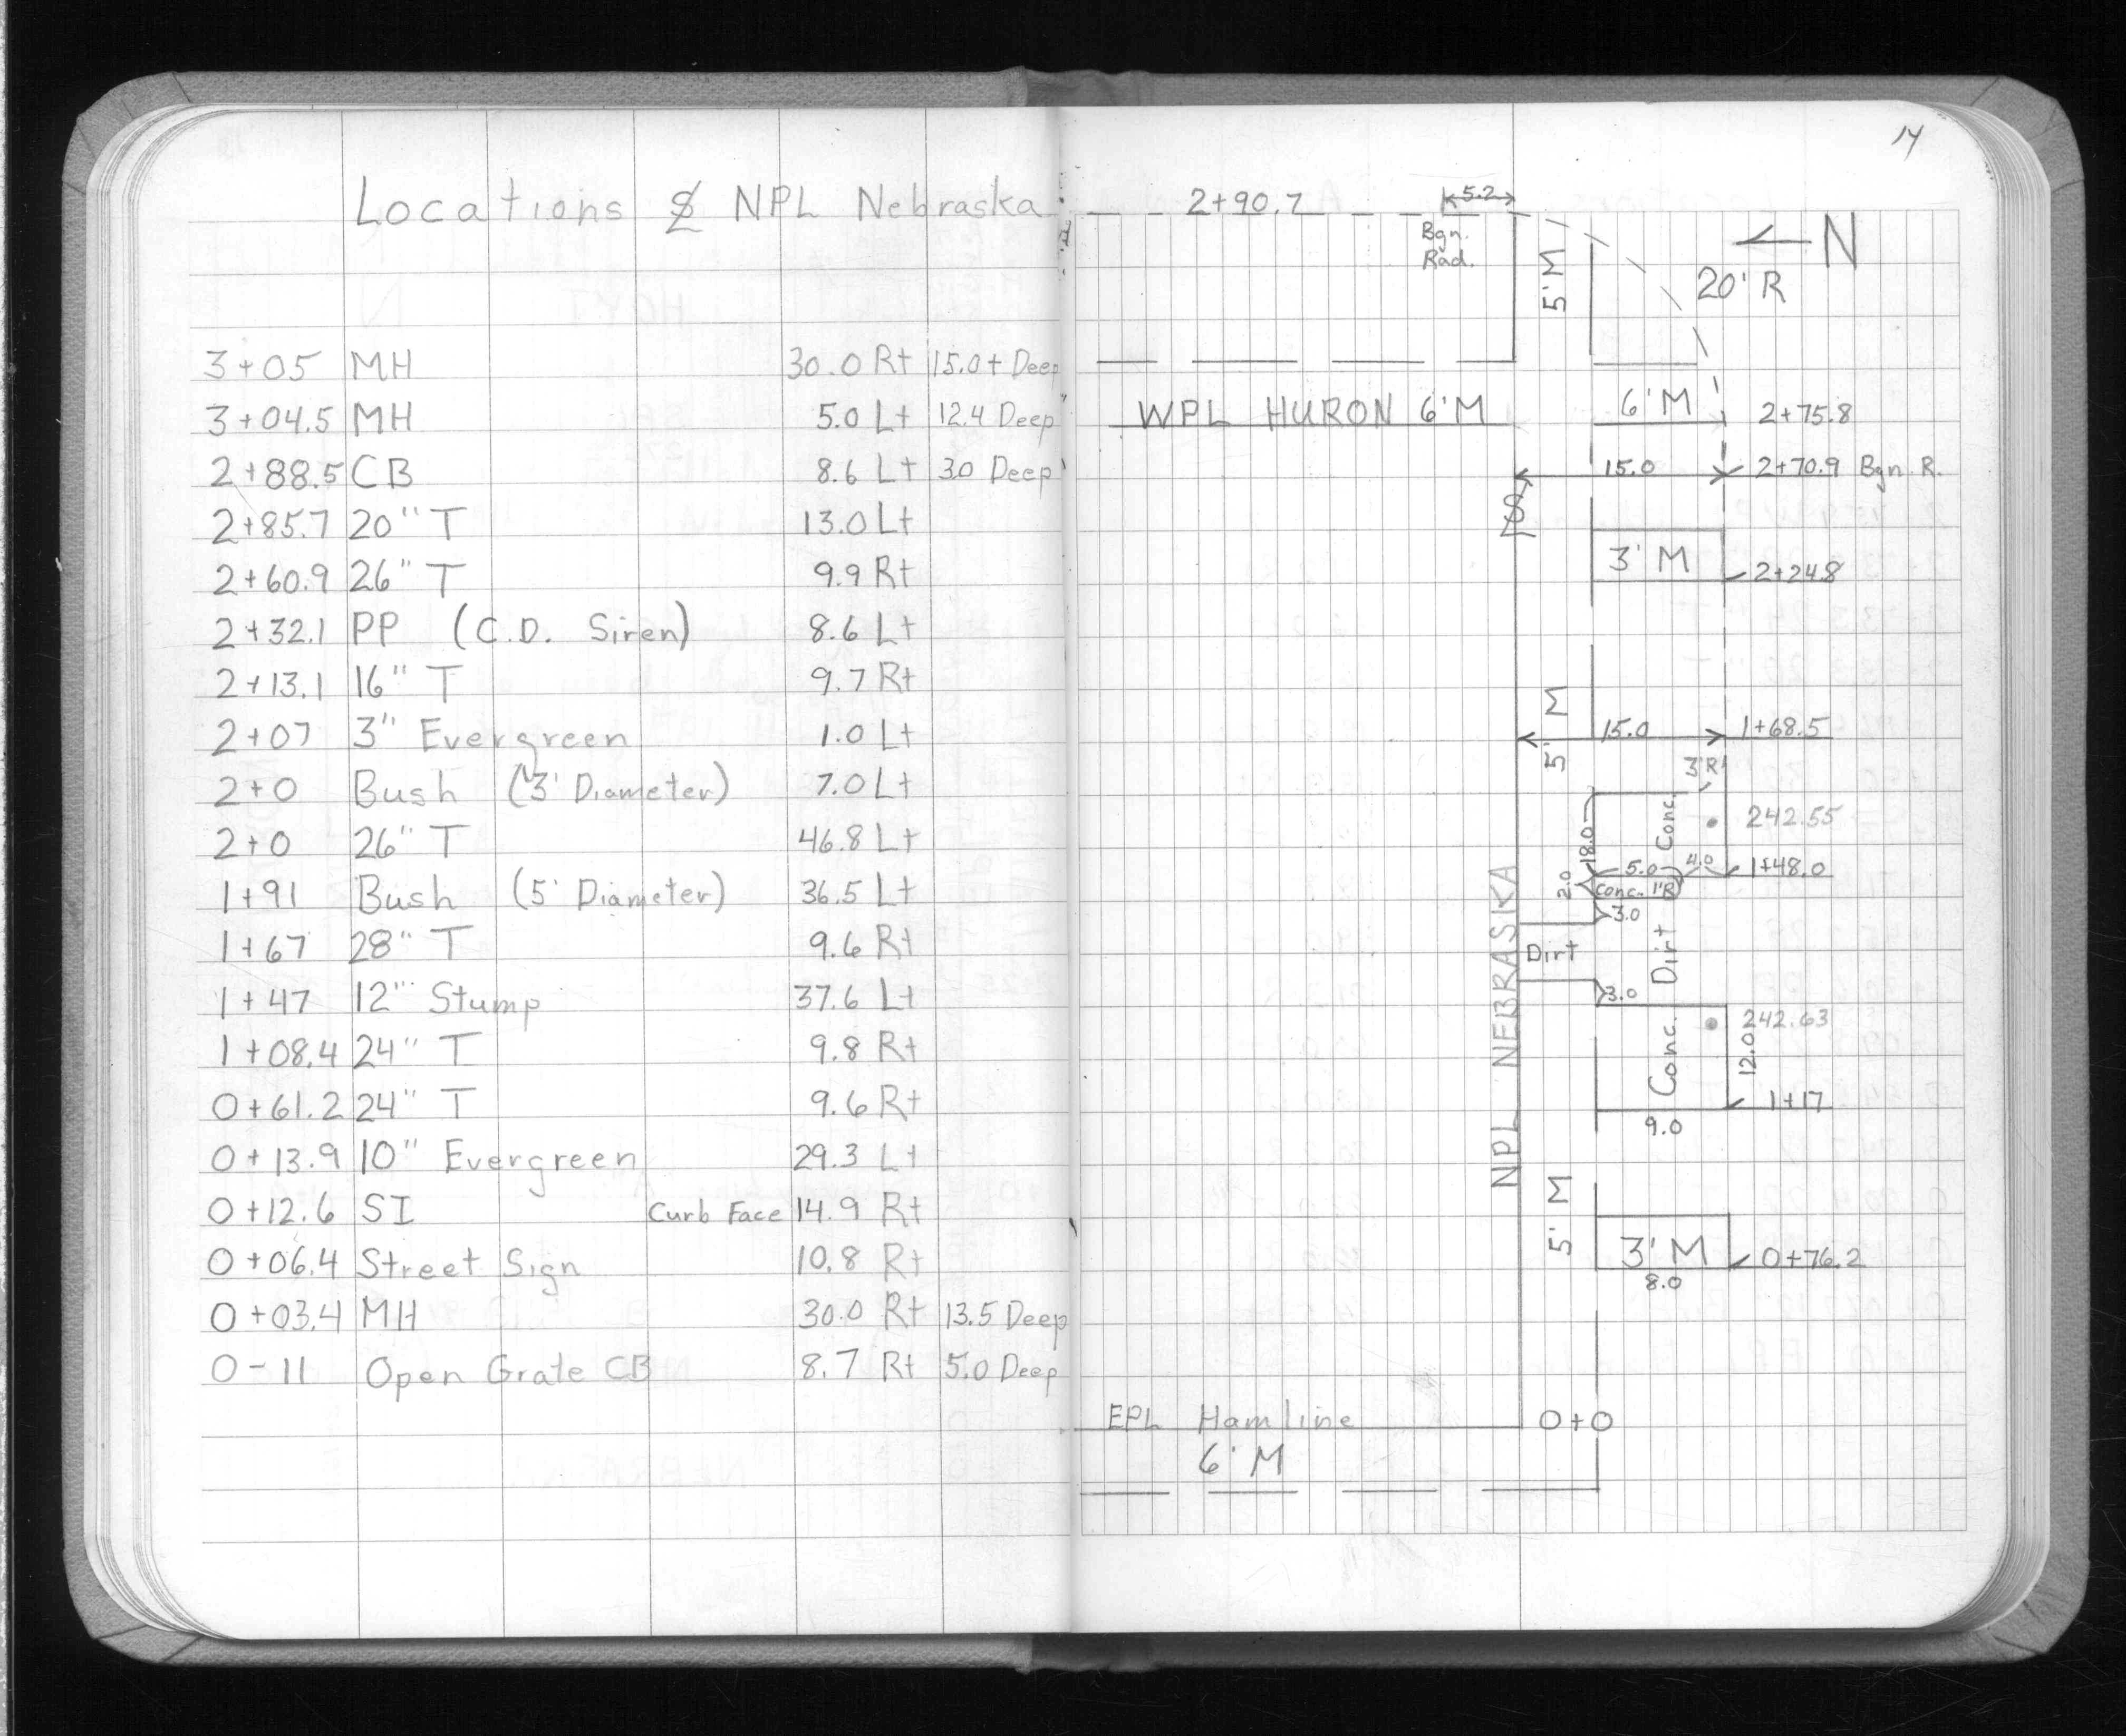 Locations ⅊ NPL Nebraska
3+05 MH 30.0 Rt 15.0+ Deep
3+04.5 MH 5.0 Lt 12.4 Deep
2+88.5 CB 8.6 Lt 3.0 Deep
2+85.7 20" T 13.0 Lt
2+60.9 26" T 9.9 Rt
2+32.1 PP (C.D. Siren) 8.6 Lt
2+13.1 16" T 9.7 Rt
2+07 3" Evergreen 1.0 Lt
2+0 Bush (3' Diameter) 7.0 Lt
2+0 26" T 46.8 Lt
1+91 Bush (5' Diameter) 36.5 Lt
1+67 28" T 9.6 Rt
1+47 12" Stump 37.6 Lt
1+08.4 24" T 9.8 Rt
0+61.2 24" T 9.6 Rt
0+13.9 10" Evergreen 29.3 Lt
0+12.6 SI Curb Face 14.9 Rt
0+06.4 Street Sign 10.8 Rt
0+03.4 MH 30.0 Rt 13.5 Deep
0-11 Open Grate CB 8.7 Rt 5.0 Deep
14
2+90.7 5.2
Bgn.
Rad.
5' M
N
20' R
WPL HURON 6'M
6'M 2+75.8
15.0 2+70.9 Bgn R.
⅊
3' M 2+24.8
5' M
15.0 1+68.5
3'R
Conc. 242.55
18.0
5.0 4.0 1+48.0
2.0 Conc. 1'R
3.0
Dirt Dirt
NPL NEBRASKA
3.0
Conc. 242.63
12.0
1+17
9.0
5' M
3' M 0+76.2
8.0
EPL Hamline 0+0
6' M